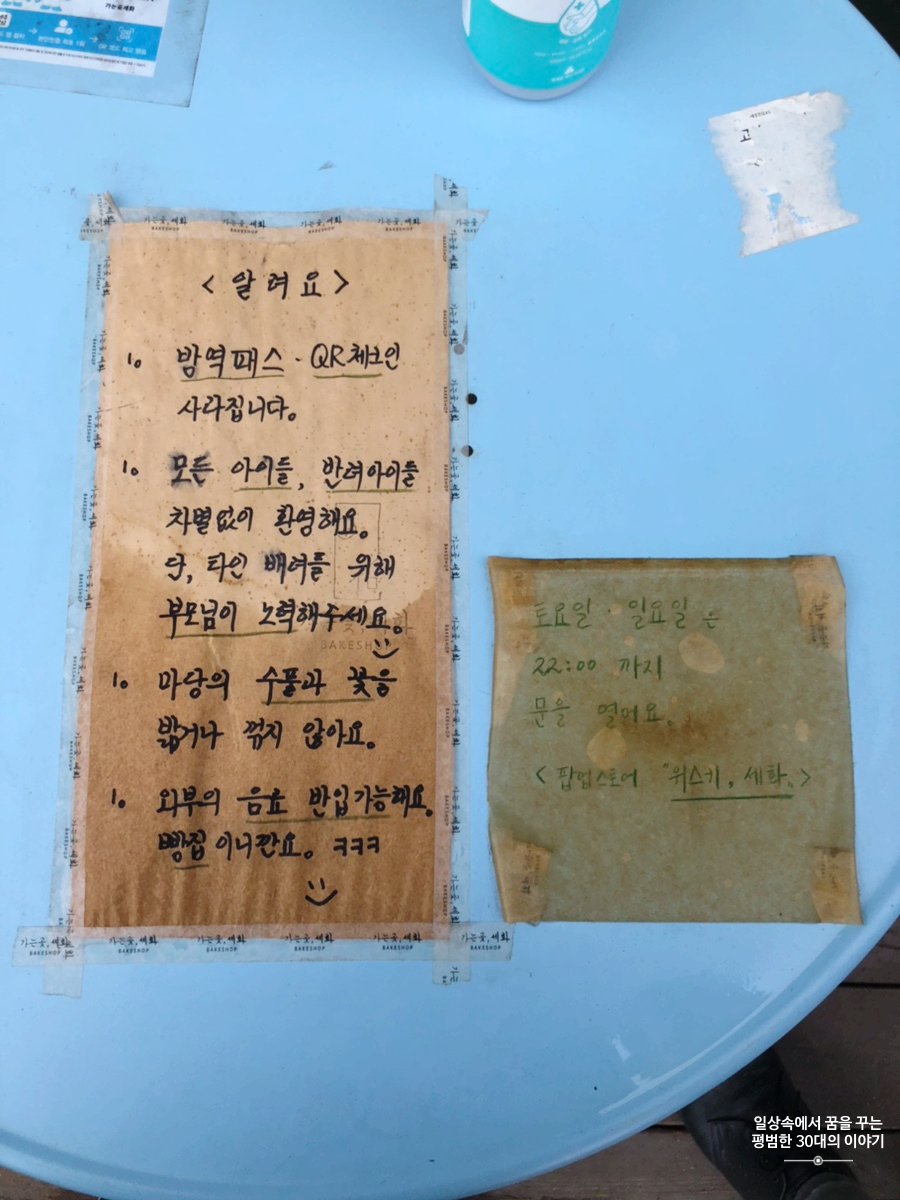 가는곶세화
< 알려요 >
1. 방역패스 · QR체크인
사라집니다.
1. 모든 아이들, 반려아이들
차별없이 환영해요.
단, 타인 배려를 위해
부모님이 노력해주세요.
1. 마당의 수풀과 꽃을
밟거나 꺾지 않아요.
1. 외부의 음료 반입가능해요.
빵집이니깐요. ㅋㅋㅋ
가는곶, 세화
BAKESHOP
고
토요일 · 일요일은
22:00 까지
문을 열어요.
< 팝업스토어 "위스키, 세화." >
일상속에서 꿈을 꾸는
평범한 30대의 이야기